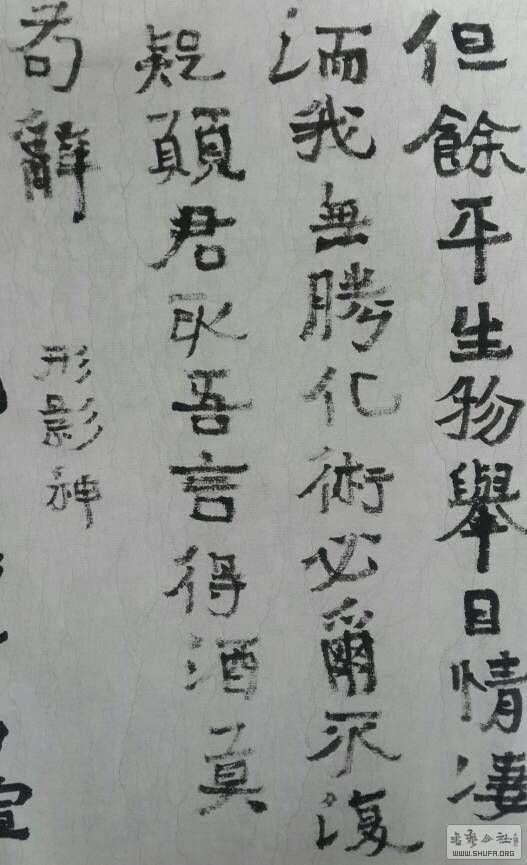 但餘平生物舉目情凄
洏我無騰化術必爾不復
疑願君取吾言得酒莫
苟辭
形影神
WWW.SHUFA.ORG